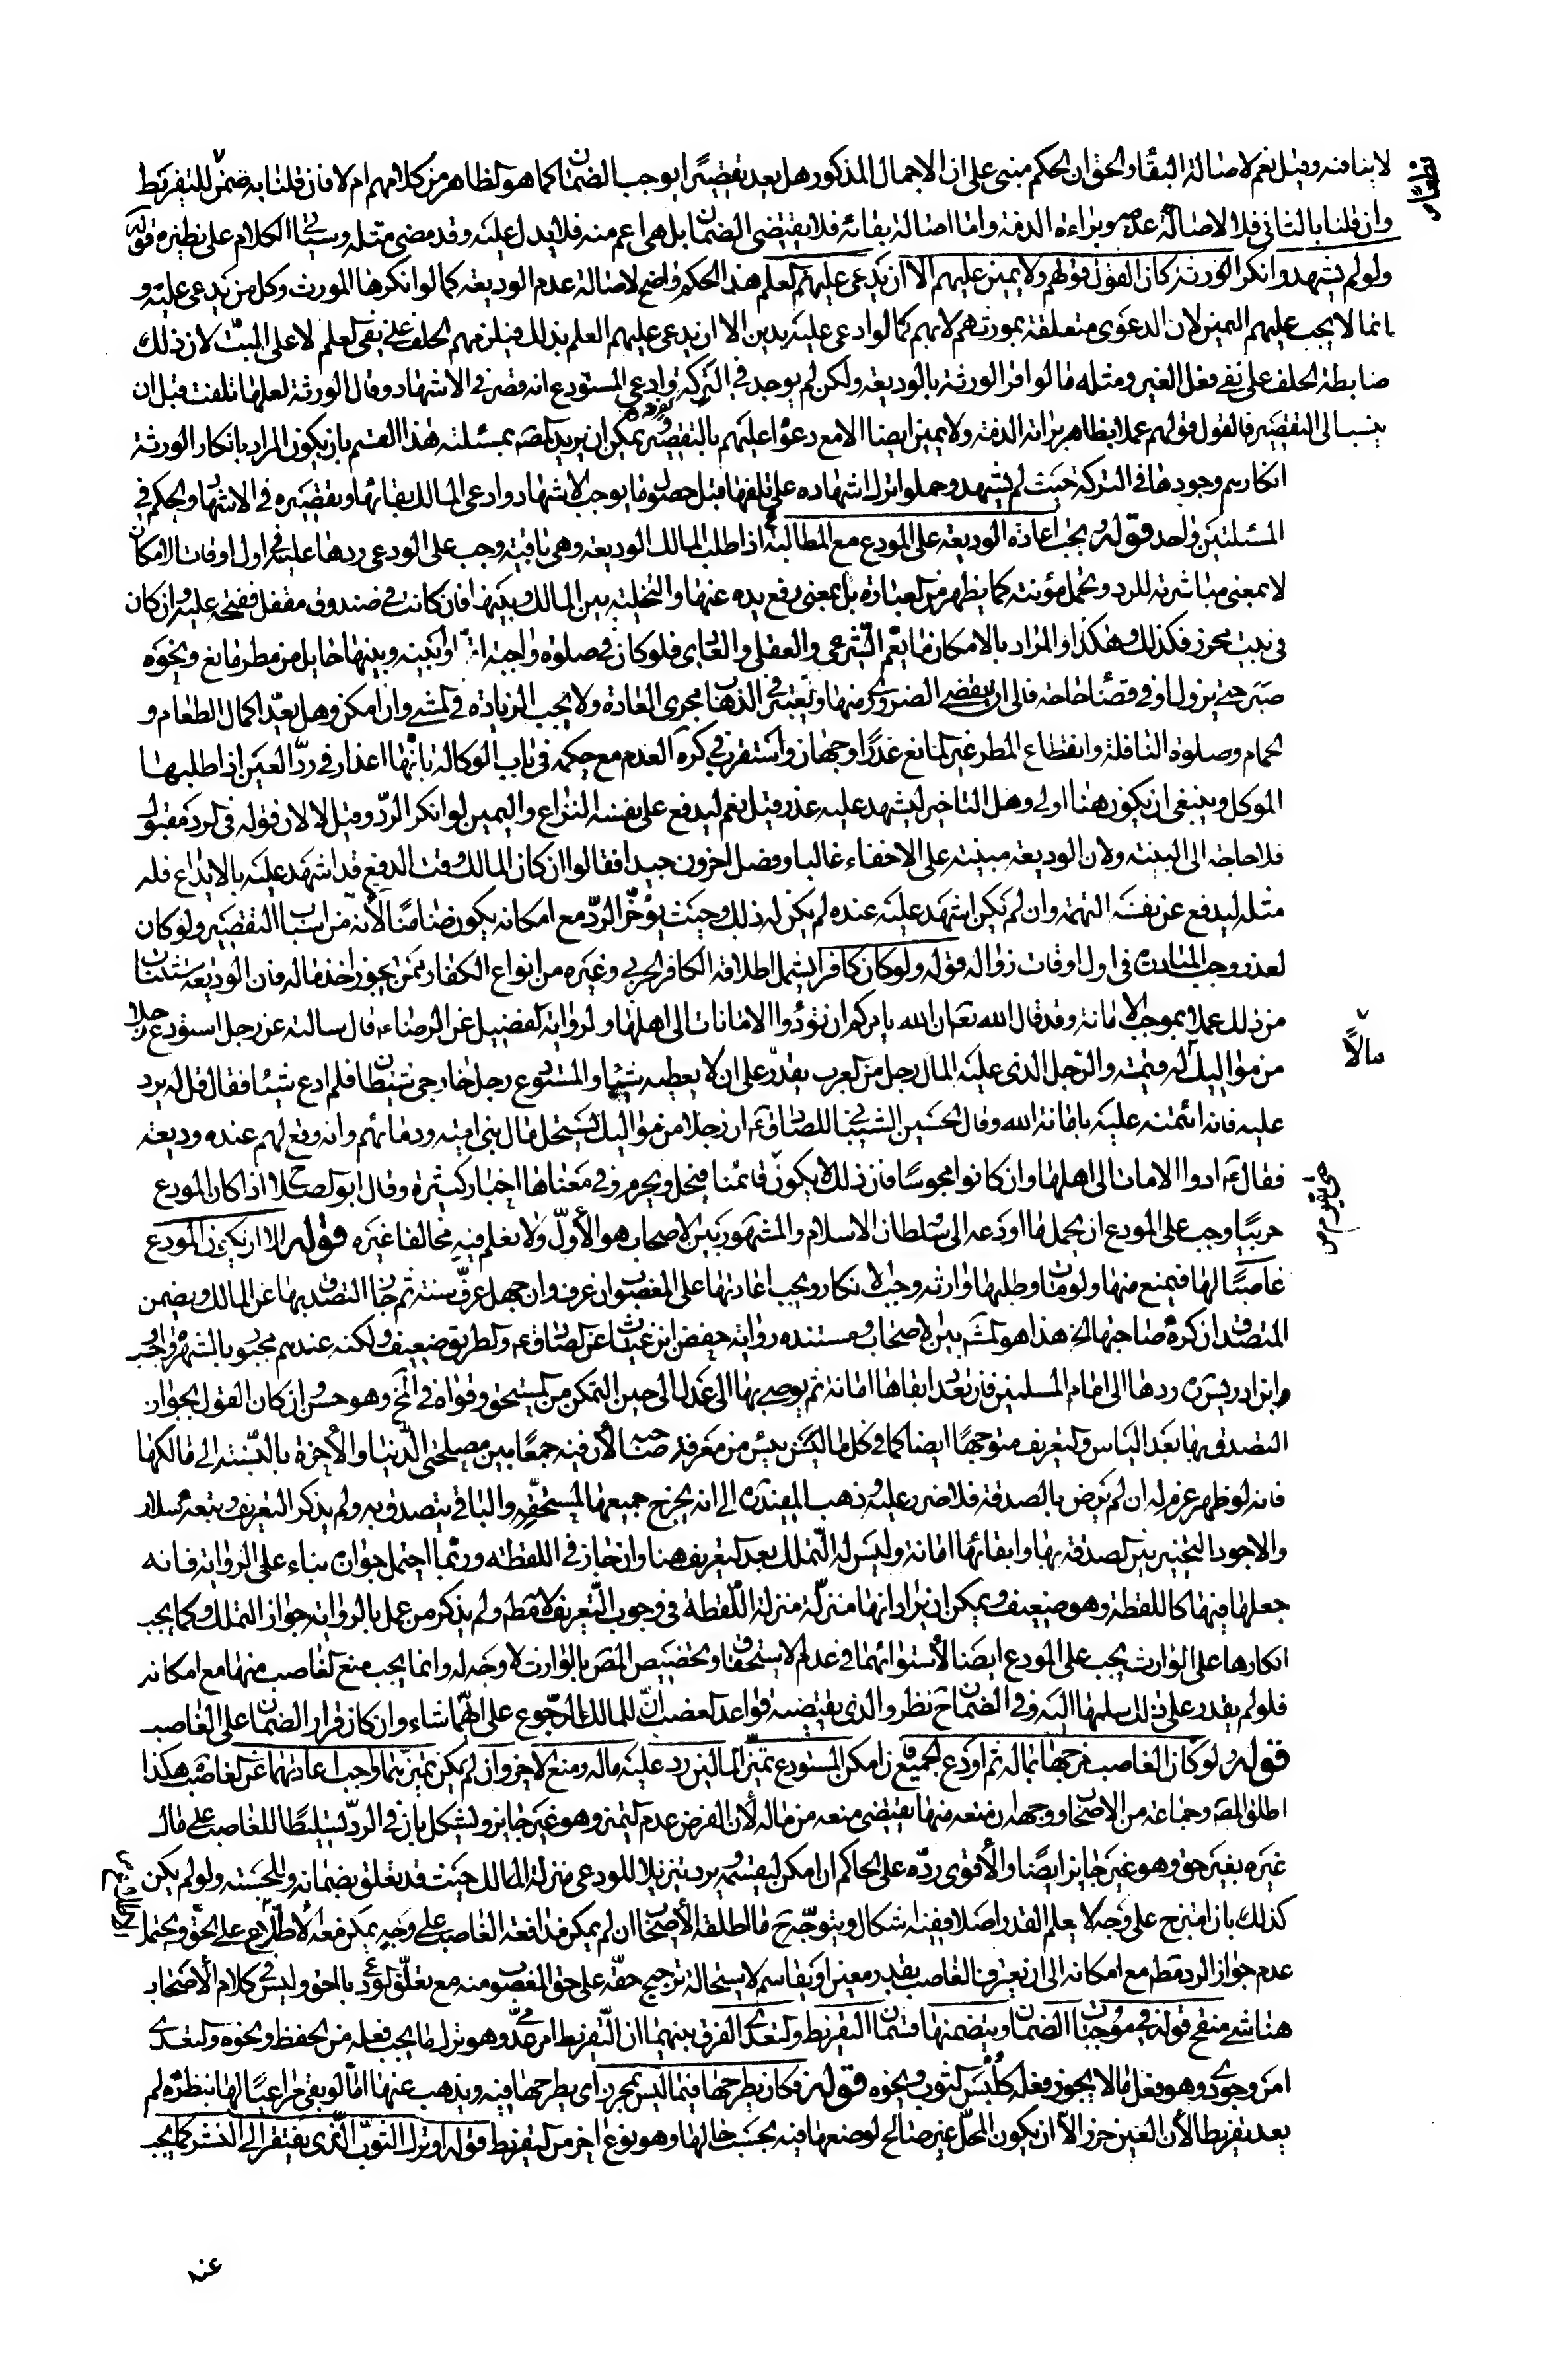 لا ينافيه وقيل نعم لاصالة البقاء والحق ان الحكم مبنى على ان الاجمال المذكور هل يعد تقصيرا يوجب الضمان كما هو الظاهر من كلامهم ام لا فان قلنا به ضمن للتفريط
وان قلنا بالثاني فلا لاصالة عدمه وبراءة الذمة واما اصالة بقائه فلا يقتضى الضمان بل هي اعم منه فلا يدل عليه وقد مضى مثله وسياتى الكلام على نظيره قوله
ولو لم يشهد وانكر الورثة كان القول قولهم ولا يمين عليهم الا ان يدعى عليهم العلم هذا الحكم واضح لاصالة عدم الوديعة كما لو انكرها المورث وكل من يدعى عليه و
انما لا يجب عليهم اليمين لان الدعوى متعلقة بمورثهم لا بهم كما لو ادعى عليه بدين الا ان يدعى عليهم العلم بذلك فيلزمهم الحلف على نفى العلم لا على البت لان ذلك
ضابطة الحلف على نفى فعل الغير ومثله ما لو اقر الورثة بالوديعة ولكن لم يوجد في التركة وادعى المستودع انه قصر في الاشهاد وقال الورثة لعلها تلفت قبل ان
ينسب الى التقصير فالقول قولهم عملا بظاهر براءة الذمة ولا يمين ايضا الا مع دعوا عليهم بالتقصير ويمكن ان يريد المصه بمسئلته هذا القسم بان يكون المراد بانكار الورثة
انكارهم وجودها في التركة حيث لم يشهد وحملوا ترك اشهاده على تلفها قبل حصول ما يوجب الاشهاد وادعى المالك بقائها وتقصيره في الاشهاد والحكم في
المسئلتين واحد قوله ويجب اعادة الوديعة على المودع مع المطالبة اذا طلب المالك الوديعة وهي باقية وجب على الودعي ردها عليه في اول اوقات الامكان
لا بمعنى مباشرته للرد وتحمل مؤنته كما يظهر من العبارة بل بمعنى رفع يده عنها والتخلية بين المالك وبينها فان كانت في صندوق مقفل ففتحه عليه وان كان
في بيت محرز فكذلك وهكذا والمراد بالامكان ما يعم الشرعي والعقلي والعادي فلو كان في صلوة واجبة اتمها او بينه وبينها حايل من مطر مانع ونحوه
صبر حتى يزول او في قضاء حاجة فالى ان ينقضى الضروري منها ويعتبر في الذهاب مجرى العادة ولا يجب الزيادة في المشي وان امكن وهل يعد اكمال الطعام و
الحمام وصلوة النافلة وانقطاع المطر غير المانع عذرا وجهان واستقرب في كره العدم مع حكمه في باب الوكالة بانها اعذار في رد العين اذا طلبها
الموكل وينبغي ان يكون هنا اولى وهل التاخير ليشهد عليه عذر قيل نعم ليدفع على نفسه النزاع واليمين لو انكر الرد وقيل لا لان قوله في الرد مقبول
فلا حاجة الى البينة ولان الوديعة مبنية على الاخفاء غالبا وفصل اخرون جيدا فقالوا ان كان المالك وقت الدفع قد اشهد عليه بالايداع فله
مثله ليدفع عن نفسه التهمة وان لم يكن اشهد عليه عنده لم يكن له ذلك وحيث يؤخر الرد مع امكانه يكون ضامنا لانه من اسباب التقصير ولو كان
لعذر وجب المبادرة في اول اوقات زواله قوله ولو كان كافرا يشمل اطلاقه الكافر الحربي وغيره من انواع الكفار ممن يجوز اخذ ماله فان الوديعة مستثناة
من ذلك عملا بموجب الامانة وقد قال الله تعالى ان الله يامركم ان تؤدوا الامانات الى اهلها ولرواية الفضيل عن الرضاء ع قال سالته عن رجل استودع رجلا
مالا
من مواليك له قيمة والرجل الذى عليه المال رجل من العرب يقدر على ان لا يعطيه شيئا والمستودع رجل خارجى شيطان فلم ادع شيئا فقال قل له يرد
عليه فانه ائتمنه عليه بامانة الله وقال الحسين الشيباني للصادق ع ان رجلا من مواليك يستحل مال بنى امية ودمائهم وانه وقع لهم عنده وديعة
فقال ع ادوا الامانات الى اهلها وان كانوا مجوسا فان ذلك لا يكون فيحل ويحرم وفي معناها اخبار كثيرة وقال ابو الصلاح اذا كان المودع
حربيا وجب على المودع ان يحمل ما اودعه الى سلطان الاسلام والمشهور بين الاصحاب هو الاول ولا نعلم فيه مخالفا غيره قوله الا ان يكون المودع
غاصبا لها فيمنع منها ولو مات وطلبها وارثه وجب الانكار ويجب اعادتها على المغصوب ان عرف وان جهل عرف سنة ثم جاز التصدق بها عن المالك ويضمن
المتصدق ان كره صاحبها الخ هذا هو المشهور بين الاصحاب ومستنده رواية حفص بن غياث عن الصادق ع والطريق ضعيف ولكنه عندهم مجبور بالشهرة واوجب
وابن ادريس ره ردها الى امام المسلمين فان تعذر ابقاها امانة ثم يوصى بها الى عدل الى حين التمكن من المستحق وقواه في لخ وهو حسن وان كان القول بجواز
التصدق بها بعد الياس والتعريف متوجها ايضا كما في كل مال يئس من معرفة صاحبه لان فيه جمعا بين مصلحتى الدنيا والاخرة بالنسبة الى مالكها
فانه لو ظهر غرم له ان لم يرض بالصدقة فلا ضرر عليه وذهب المفيد ره الى انه يخرج خمسها لمستحقه والباقي يتصدق به ولم يذكر التعريف وتبعه سلار
والاجود التخيير بين الصدقة بها وابقائها امانة وليس له التملك بعد التعريف هنا وان جاز في اللقطة وربما احتمل جوازه بناء على الرواية فانه
جعلها فيها كاللقطة وهو ضعيف ويمكن ان يراد انها منزلة منزلة اللقطة في وجوب التعريف لا مطلقا ولم يذكر من عمل بالرواية جواز التملك وكما يجب
انكارها على الوارث يجب على المودع ايضا لاستوائهما في عدم الاستحقاق وتخصيص المصه بالوارث لا وجه له وانما يجب منع الغاصب منها مع امكانه
فلو لم يقدر على ذلك سلمها اليه وفي الضمان ح نظر والذى يقتضيه قواعد الغصب ان للمالك الرجوع على ايهما شاء وان كان قرار الضمان على الغاصب
قوله ولو كان الغاصب مزجها بماله ثم اودع الجميع فان امكن المستودع تميز المالين رد عليه ماله ومنع الاخر وان لم يكن تميزهما وجب اعادتهما على الغاصب هكذا
اطلق المصه وجماعة من الاصحاب ووجهه ان منعه منها يقتضى منعه من ماله لان الفرض عدم التميز وهو غير جايز ويشكل بان في الرد تسليطا للغاصب على مال
غيره بغير حق وهو غير جايز ايضا والاقوى رده على الحاكم ان امكن ليقسمه ويرد تنزيلا للودعي منزلة المالك حيث قد تعلق بضمانه وللحسبة ولو لم يكن
كذلك بان امتزج على وجه لا يعلم القدر اصلا ففيه اشكال ويتوجه ح ما اطلقه الاصحاب ان لم يمكن مدافعة الغاصب على وجه يمكن معه الاطلاع على الحق ويحتمل
عدم جواز الرد مطلقا مع امكانه الى ان يعترف الغاصب بقدر معين او يقاسم لاستحالة ترجيح حقه على حق المغصوب منه مع تعلق الودعي بالحق وليس في كلام الاصحاب
هنا شئ منقح قوله في موجبات الضمان ويتضمنها قسمان التفريط والتعدي الفرق بينهما ان التفريط امر عدمي وهو ترك ما يجب فعله من الحفظ ونحوه والتعدي
امر وجودى وهو فعل ما لا يجوز فعله كلبس الثوب ونحوه قوله فكان يطرحها فيما ليس بحرز اى يطرحها فيه ويذهب عنها اما لو بقى مراعيا لها بنظره لم
يعد تفريطا لان العين حرز الا ان يكون المحل غير صالح لوضعها فيه بحسب حالها وهو نوع اخر من التفريط قوله او ترك الثوب الذى يفتقر الى النشر كما يجب
عنه